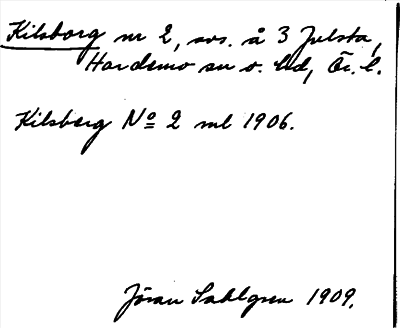 Kilsborg nr 2, sos. å 3 Julsta,
Hardemo sn o. hd, Ör. l.
Kilsberg No 2 ml 1906.
Jöran Sahlgren 1909.